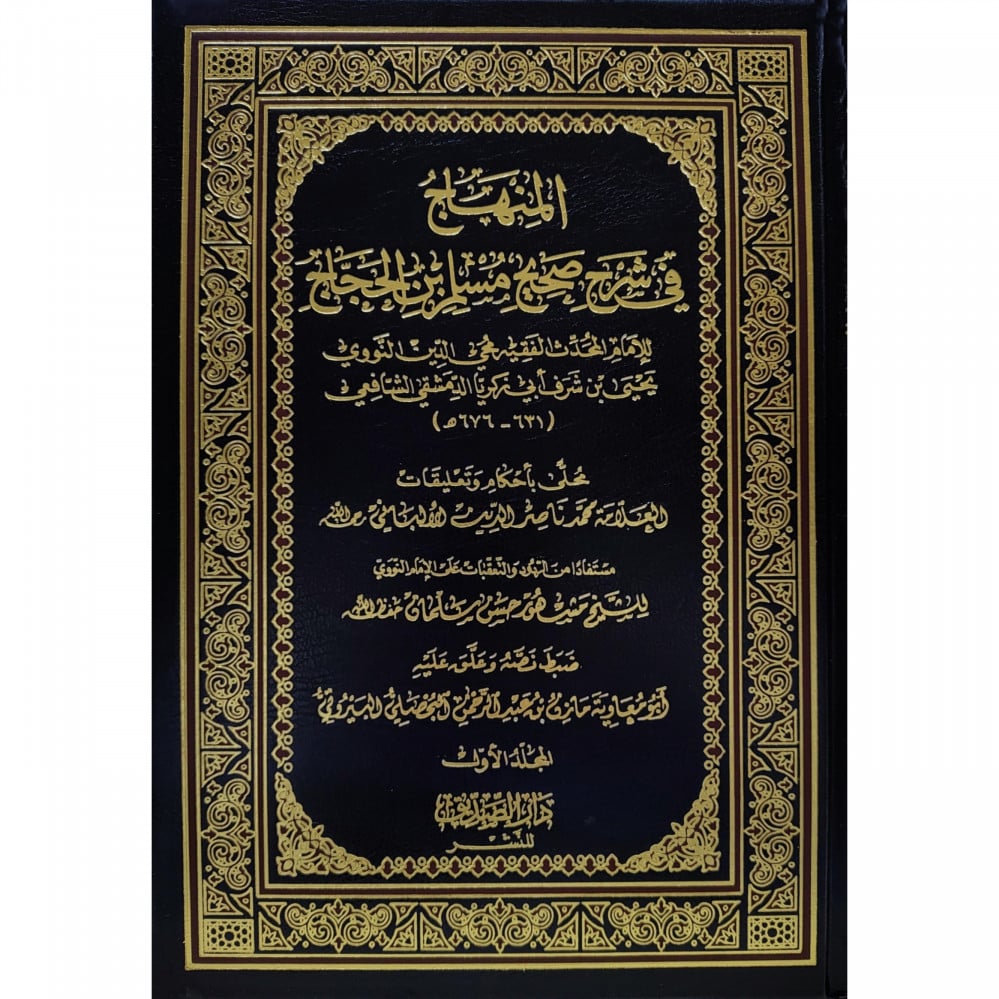 المِنْهَاجُ
في شَرْحِ صَحِيحِ مُسْلِم بْنِ الحَجَّاجِ
للإمَام المُحَدّث الفَقِيه مُحْيي الدِّين النَّوَوي
يَحْيَى بن شَرَف أبي زكريا الدِّمَشقي الشافِعي
(٦٣١ - ٦٧٦ هـ)
مُحَلًّى بأحْكَام وَتَعْليقَات
العَلّامَة مُحمَّد نَاصِر الدِّين الألبَاني رحمه الله
مستفادًا من الردود والتعقبات عَلى الإمام النووي
للشيخ مشهور حسن سلمان حفظه الله
ضَبَط نَصَّهُ وَعَلَّق عَليْهِ
أبو مُعَاوية مَازن بن عَبد الرَّحمن البحصَلي البَيروتي
المجلّد الأوّل
دَار الصِّدِّيق
للنشر